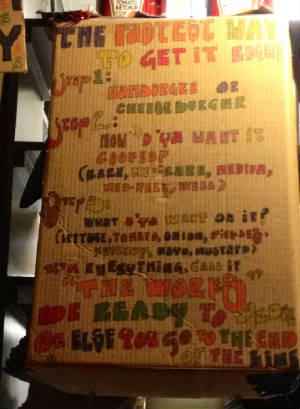 TOMATO
KETCHUP
Y
THE FASTEST WAY
TO GET IT RIGHT
Step 1:
HAMBURGER OR
CHEESEBURGER
Step 2:
HOW D'YA WANT IT
COOKED?
(RARE, MED-RARE, MEDIUM,
MED-WELL, WELL)
Step 3:
WHAT D'YA WANT ON IT?
(LETTUCE, TOMATO, ONION, PICKLES,
KETCHUP, MAYO, MUSTARD)
WITH EVERYTHING, CALL IT
"THE WORKS"
BE READY TO
OR ELSE YOU GO TO THE END
OF THE LINE